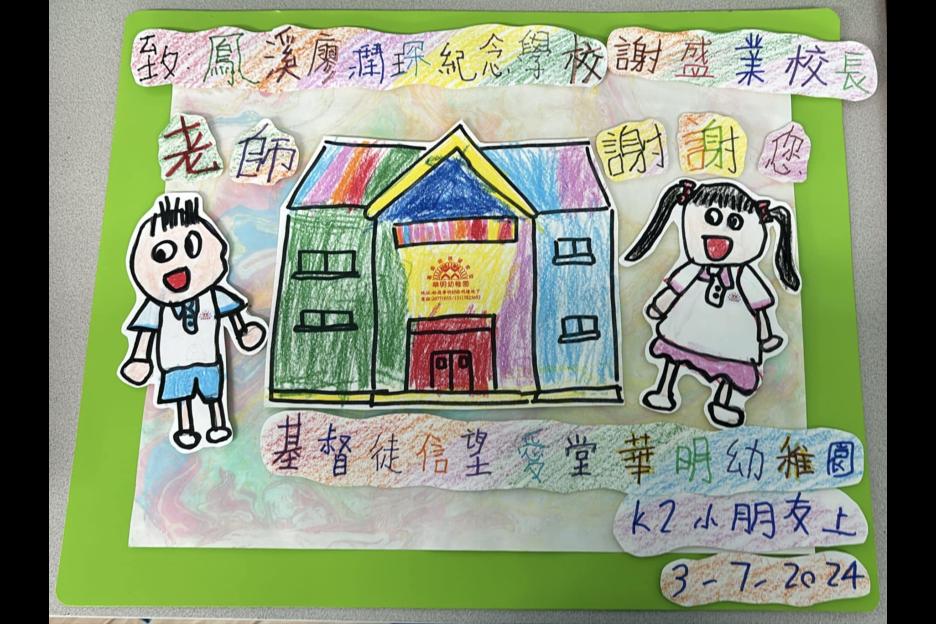 致鳳溪廖潤琛紀念學校謝盛業校長
老師 謝謝您
華明幼稚園
基督徒信望愛堂華明幼稚園
K2小朋友上
3-7-2024